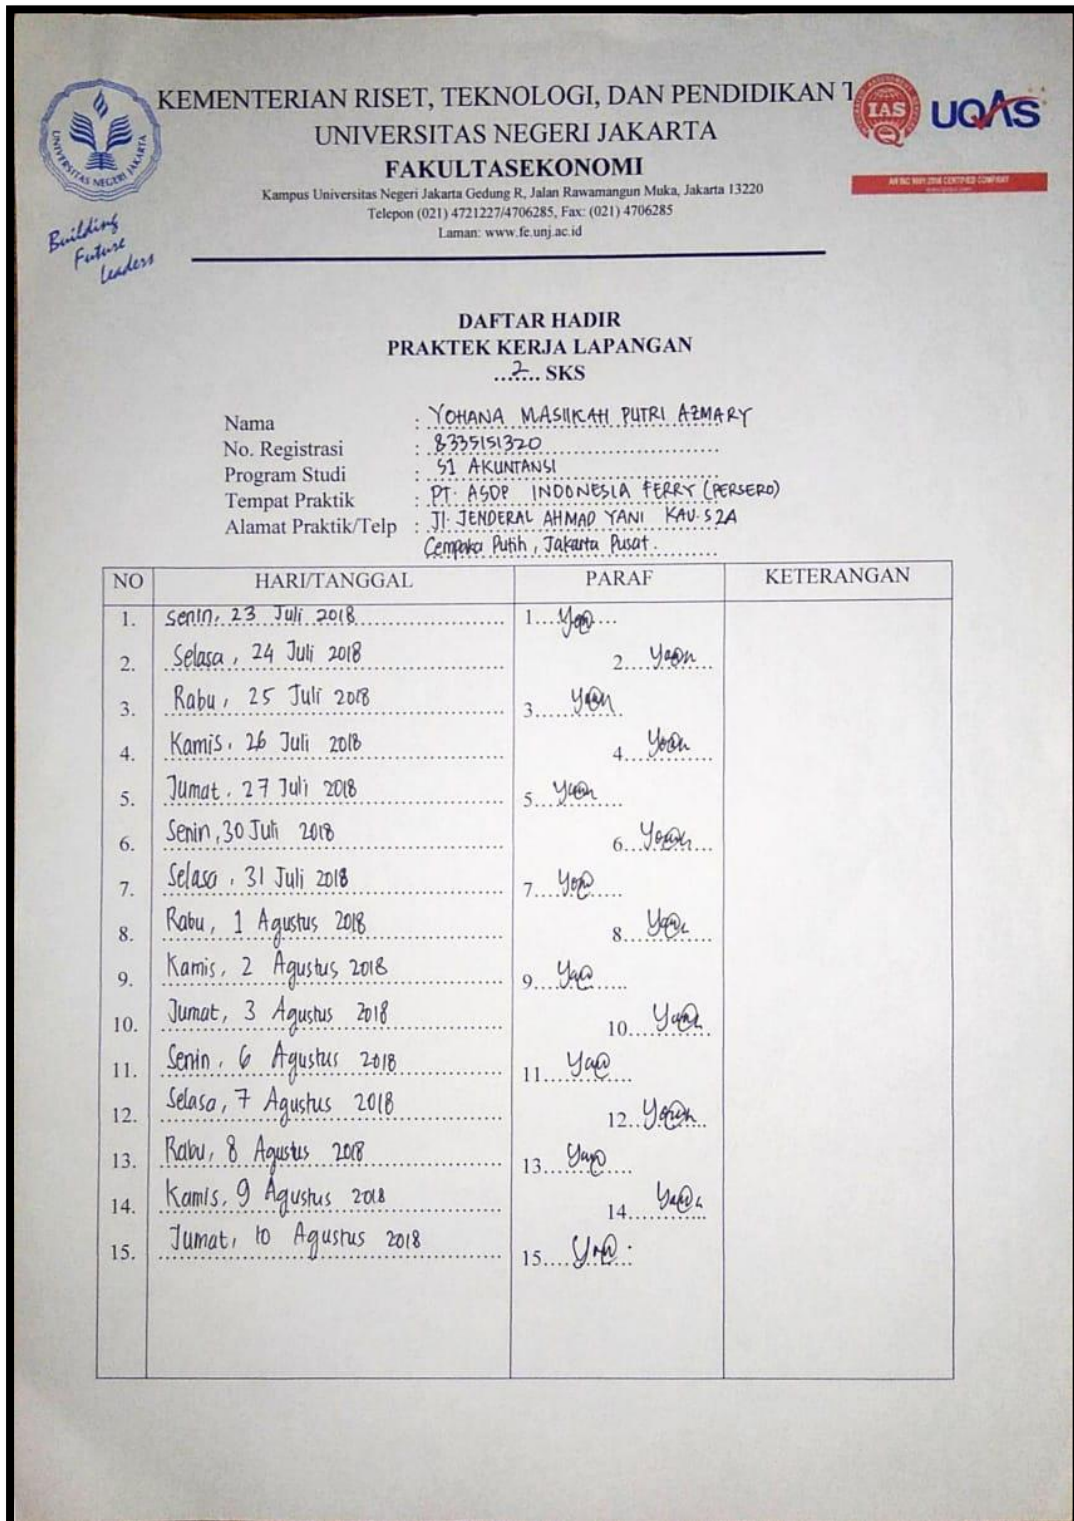 KEMENTERIAN RISET, TEKNOLOGI, DAN PENDIDIKAN T
UNIVERSITAS NEGERI JAKARTA
FAKULTASEKONOMI
Kampus Universitas Negeri Jakarta Gedung R, Jalan Rawamangun Muka, Jakarta 13220
Telepon (021) 4721227/4706285, Fax: (021) 4706285
Laman: www.fe.unj.ac.id
UNIVERSITAS NEGERI JAKARTA
Building
Future
Leaders
IAS
UQAS
DAFTAR HADIR
PRAKTEK KERJA LAPANGAN
...2... SKS
Nama : YOHANA MASIIKAH PUTRI AZMARY
No. Registrasi : 8335151320
Program Studi : S1 AKUNTANSI
Tempat Praktik : PT. ASDP INDONESIA FERRY (PERSERO)
Alamat Praktik/Telp : Jl. JENDERAL AHMAD YANI KAV. 52A
Cempaka Putih, Jakarta Pusat.
NO HARI/TANGGAL PARAF KETERANGAN
1. Senin, 23 Juli 2018 1.
2. Selasa, 24 Juli 2018 2.
3. Rabu, 25 Juli 2018 3.
4. Kamis, 26 Juli 2018 4.
5. Jumat, 27 Juli 2018 5.
6. Senin, 30 Juli 2018 6.
7. Selasa, 31 Juli 2018 7.
8. Rabu, 1 Agustus 2018 8.
9. Kamis, 2 Agustus 2018 9.
10. Jumat, 3 Agustus 2018 10.
11. Senin, 6 Agustus 2018 11.
12. Selasa, 7 Agustus 2018 12.
13. Rabu, 8 Agustus 2018 13.
14. Kamis, 9 Agustus 2018 14.
15. Jumat, 10 Agustus 2018 15.